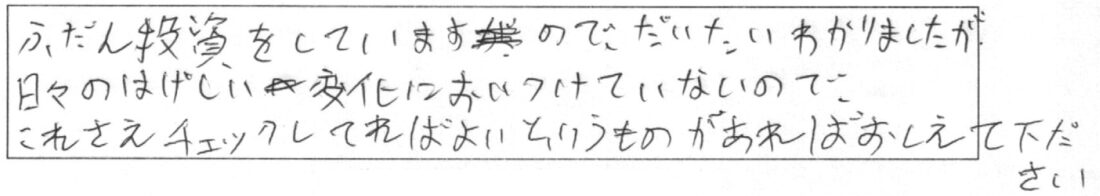 ふだん投資をしていますので だいたいわかりましたが、
日々のはげしい変化においつけていないので、
これさえチェックしてればよいというものがあればおしえて下だ
さい